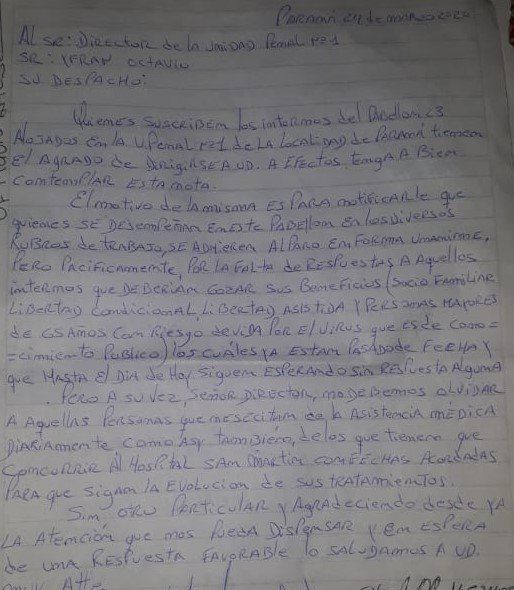 Paraná 24 de marzo 2020
Al sr: Director de la Unidad Penal Nº1
SR: YFRAN OCTAVIO
SU DESPACHO:
Quienes suscriben los internos del Pavellon
Alojados en la U.Penal Nº1 de la Localidad de PARANÁ tienen
El Agrado de Dirigirse A UD. A Efectos tenga A Bien
contemplar Esta nota.
El motivo de la misma Es PARA notificarle que
quienes SE Desempeñan En Este Pabellon En los Diversos
Rubros de trabajo, SE Adhieren Al Paro En Forma Unanime,
Pero Pacificamente, Por la Falta de Respuestas A Aquellos
internos que Deberian Gozar Sus Beneficios (Socio Familiar
Libertad condicional Libertad Asistida y Personas Mayores
de 65 Años Con Riesgo de vida Por El Virus que es de cono=
=cimiento Publico) los cuales ya Estan Pasado de Fecha y
que Hasta El Dia de Hoy Siguen Esperando sin Respuesta Alguna
. Pero A su vez, Señor Director, no Debemos olvidar
A Aquellas Personas que nescecitan de la Asistencia medica
Diariamente como Asy tambien, de los que tienen que
Concurrir Al Hospital San Martin con Fechas Acordadas
Para que sigan la Evolucion de sus tratamientos.
Sin otro Particular y Agradeciendo desde ya
La Atención que nos Pueda Dispensar y en Espera
de una Respuesta Favorable lo saludamos A UD.
Atte